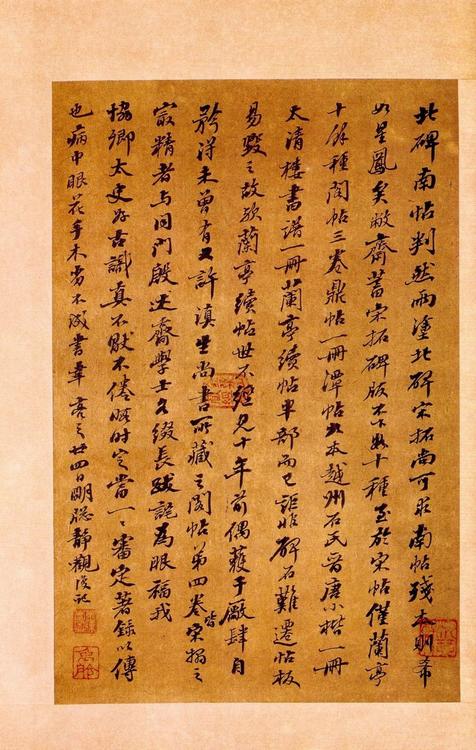 北碑南帖判然兩塗北碑宋拓尚可求南帖殘本則希
如星鳳矣敝齋蓄宋拓碑版不下數十種至於宋帖僅蘭亭
十餘種閣帖三卷鼎帖一冊潭帖九本越州石氏晉唐小楷一冊
太清樓書譜一冊蘭亭續帖半部而已詎非碑石難遷帖板
易毀之故歟蘭亭續帖世不經見十年前偶獲于廠肆自
矜得未曾有又許滇生尚書所藏之閣帖第四卷皆宋搨之
最精者与同門殷述齋學士各綴長跋詫為眼福我
協卿太史好古識真不厭不倦暇時定當一一審定著錄以傳
也病中眼花手木劣不成書幸 亮之廿四日明聰靜觀復記